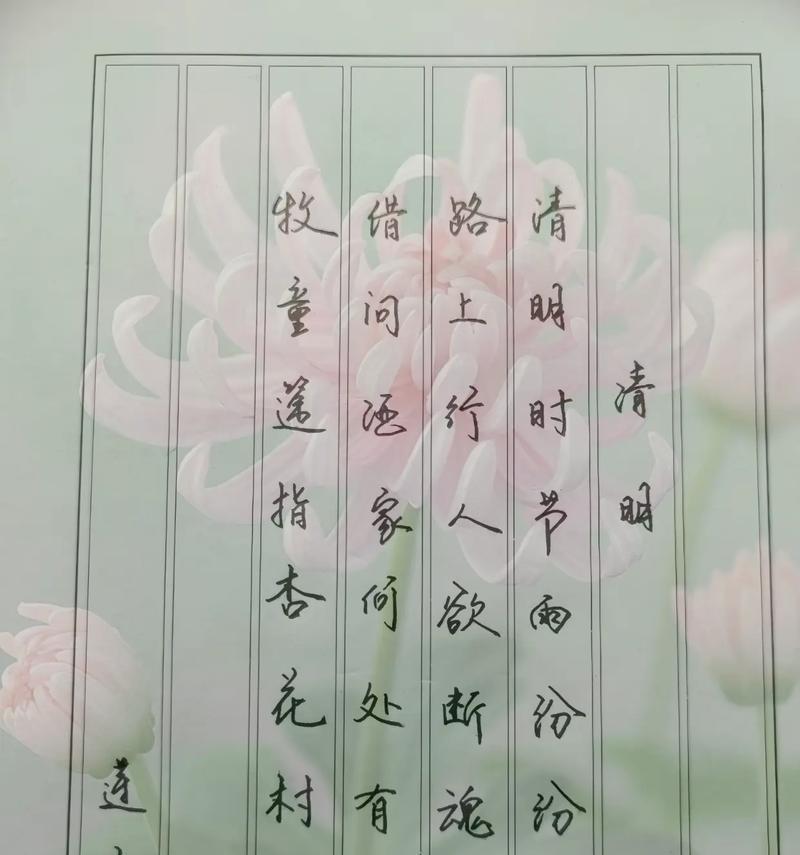 清明
清明时节雨纷纷
路上行人欲断魂
借问酒家何处有
牧童遥指杏花村
莲